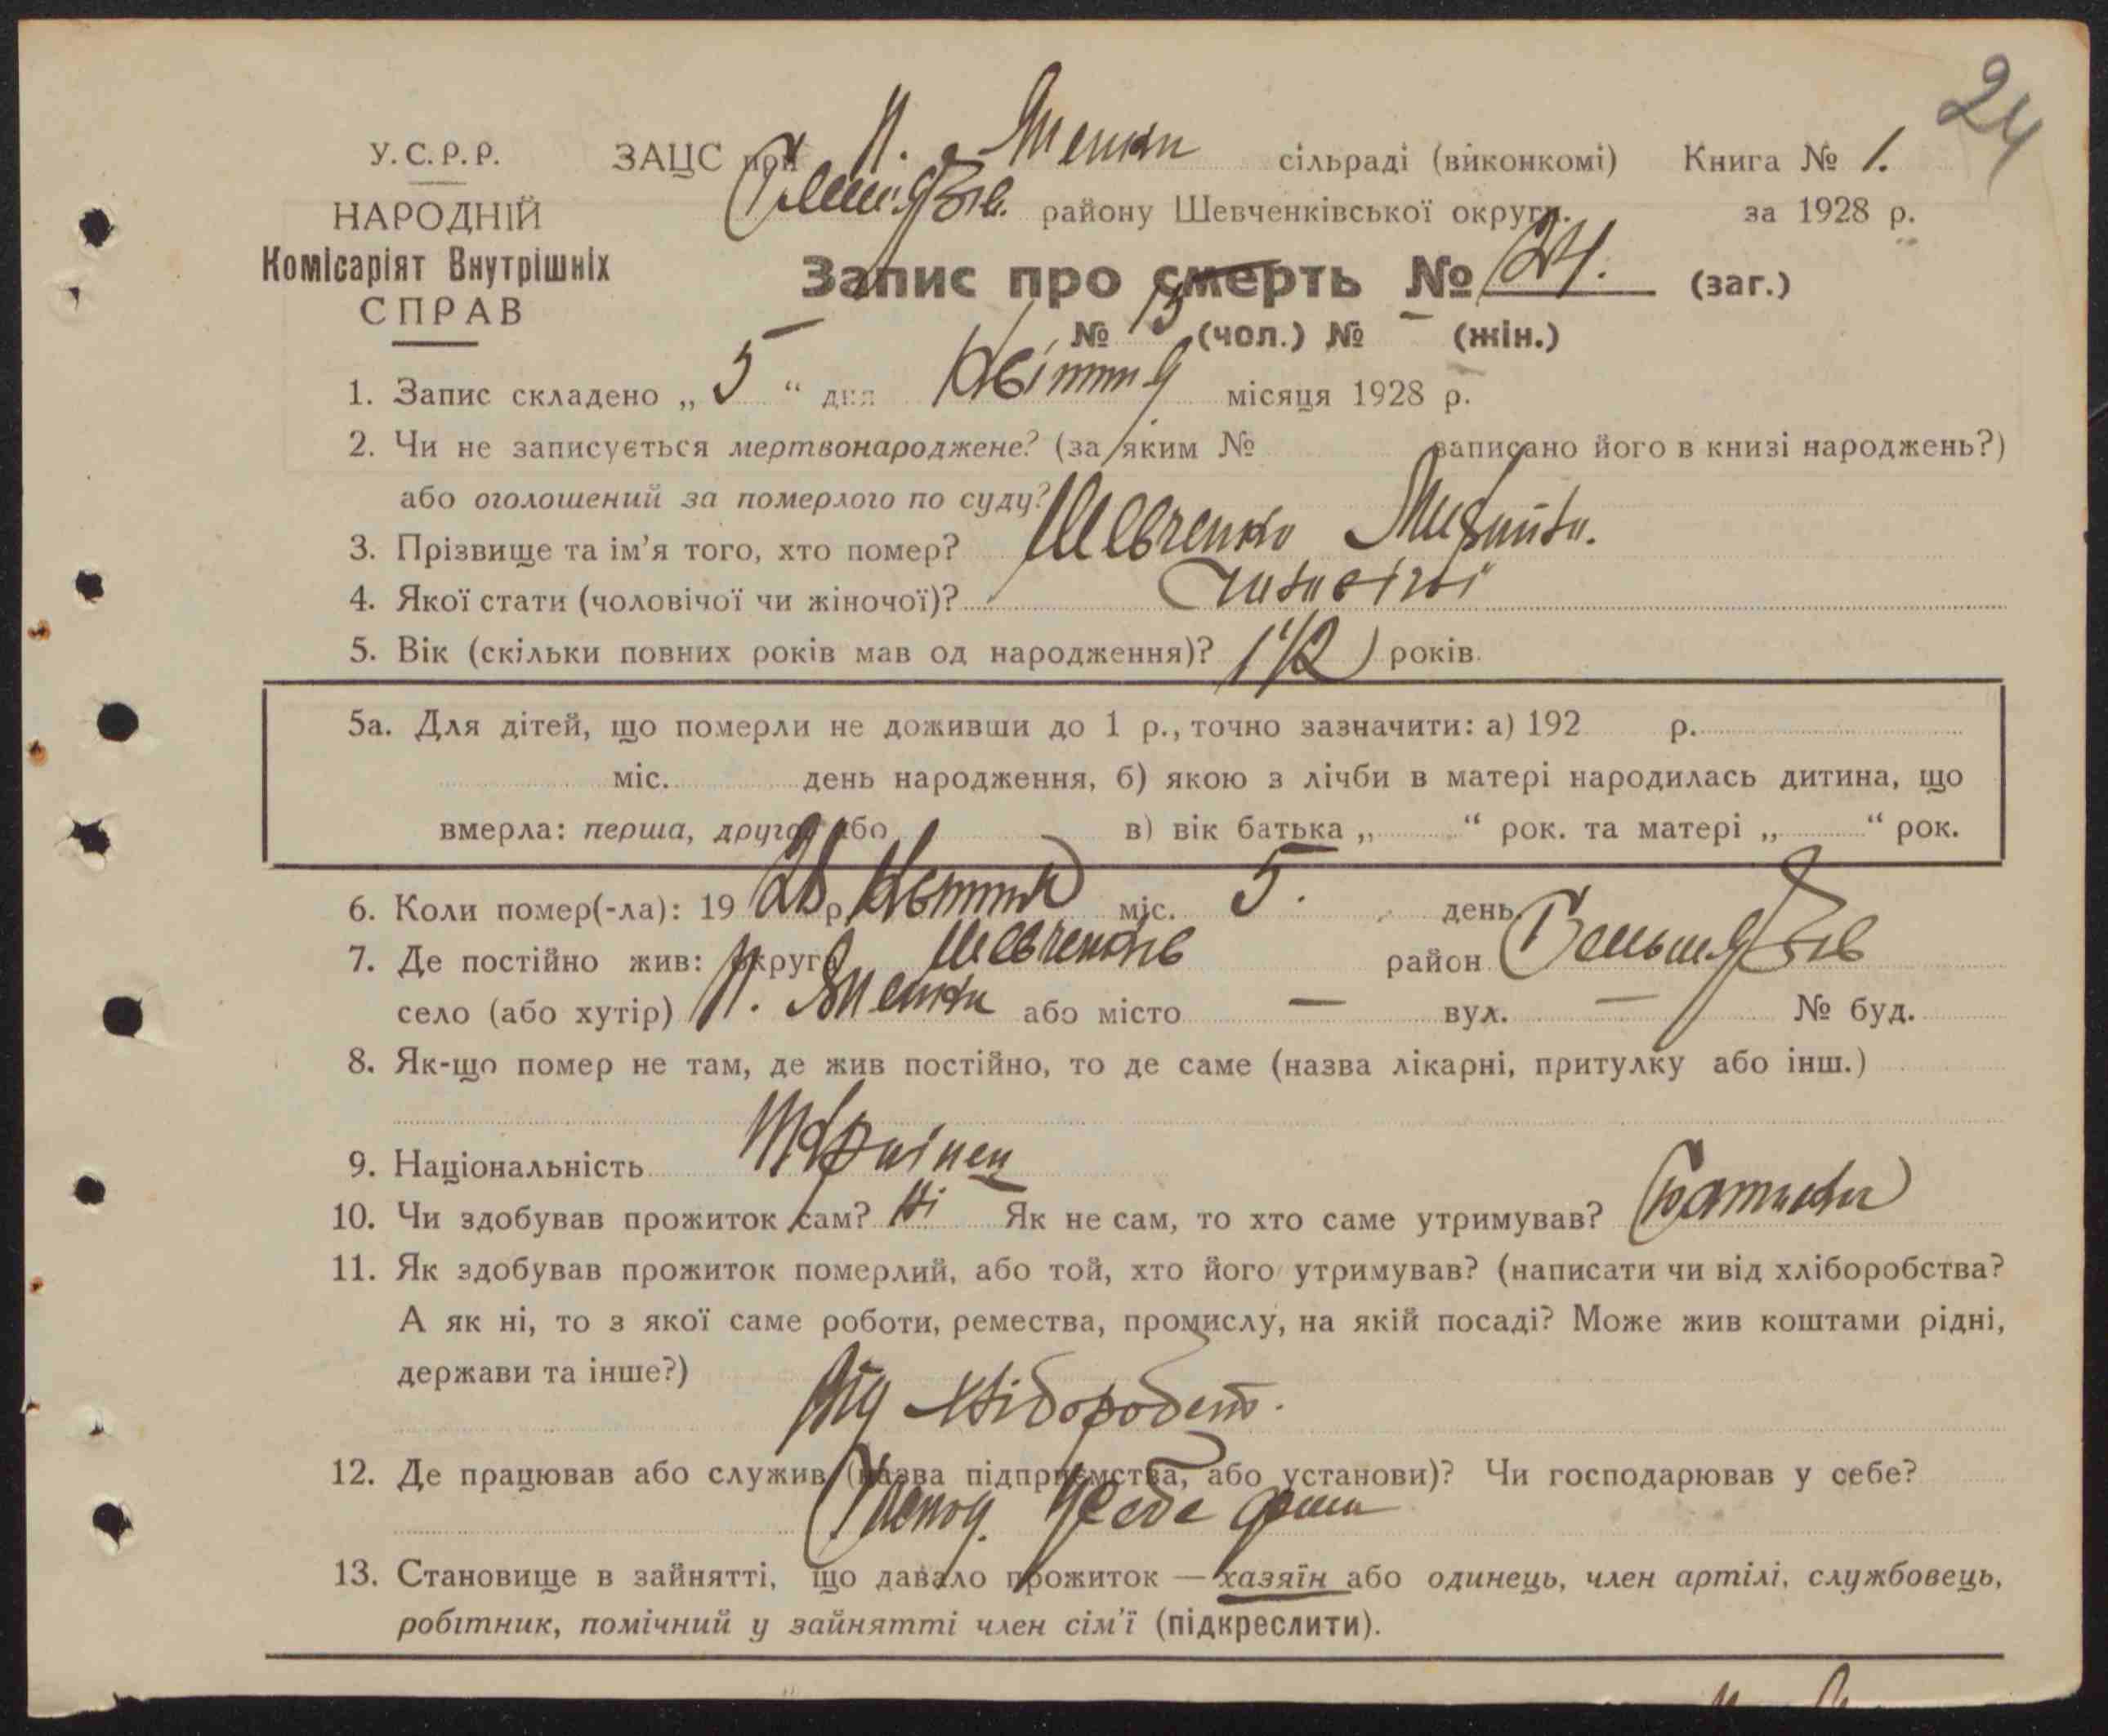 24
У. С. Р. Р. ЗАЦС при сільраді (виконкомі) Книга № 1.
НАРОДНІЙ району Шевченківської округи. за 1928 р.
Комісаріят Внутрішніх Запис про смерть № 24. (заг.)
СПРАВ
№ 13 (чол.) № – (жін.)
1. Запис складено „ 5 “ дня Квітня місяця 1928 р.
2. Чи не записується мертвонароджене? (за яким № записано його в книзі народжень?)
або оголошений за померлого по суду?
3. Прізвище та ім’я того, хто помер? Шевченко Михайло.
4. Якої стати (чоловічої чи жіночої)? Чоловічої
5. Вік (скільки повних років мав од народження)? 1 1/2 років.
5а. Для дітей, що померли не доживши до 1 р., точно зазначити: а) 192 р.
міс. день народження, б) якою з лічби в матері народилась дитина, що
вмерла: перша, друга, або в) вік батька „ “ рок. та матері „ “ рок.
6. Коли помер(-ла): 19 28 р. Квітня міс. 5. день.
7. Де постійно жив: округа Шевченків район
село (або хутір) або місто – вул. – № буд.
8. Як-що помер не там, де жив постійно, то де саме (назва лікарні, притулку або інш.)
9. Національність Українец
10. Чи здобував прожиток сам? Ні Як не сам, то хто саме утримував? Батьки
11. Як здобував прожиток померлий, або той, хто його утримував? (написати чи від хліборобства?
А як ні, то з якої саме роботи, ремества, промислу, на якій посаді? Може жив коштами рідні,
держави та інше?)
Від хліборобст.
12. Де працював або служив (назва підприємства, або установи)? Чи господарював у себе?
Господ. у себе дома
13. Становище в зайнятті, що давало прожиток — хазяїн або одинець, член артілі, службовець,
робітник, помічний у зайнятті член сім’ї (підкреслити).